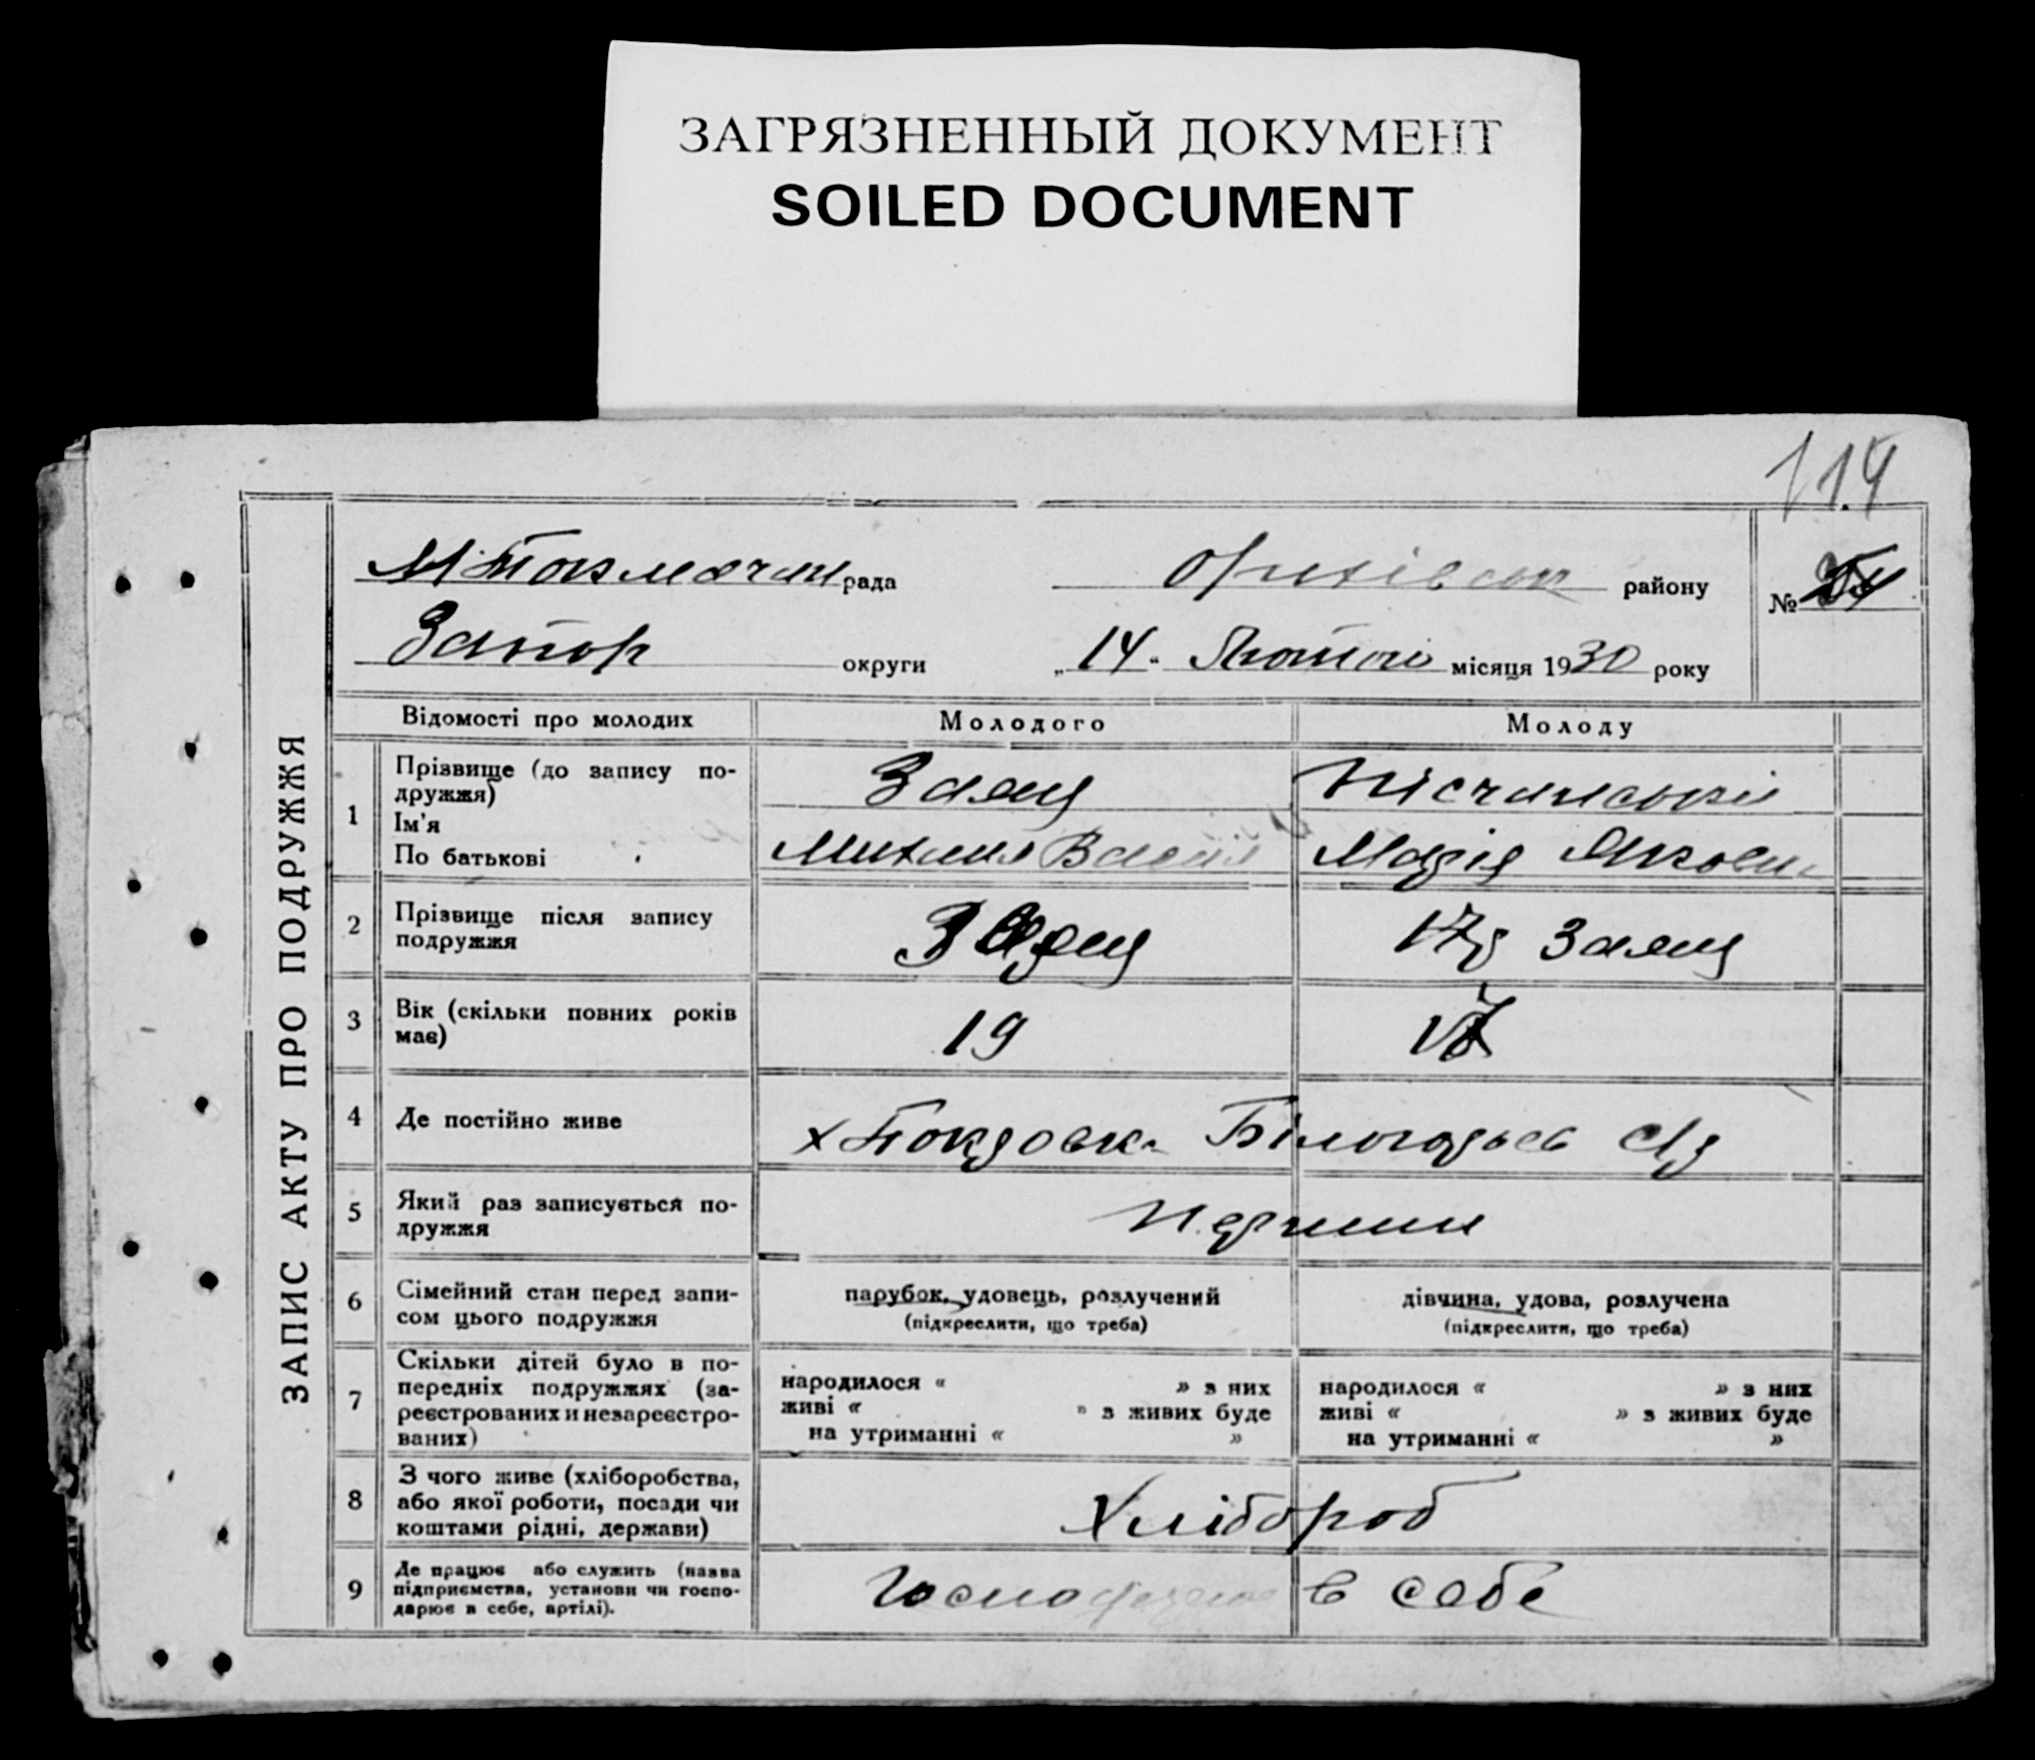 ЗАГРЯЗНЕННЫЙ ДОКУМЕНТ
SOILED DOCUMENT
114
ЗАПИС АКТУ ПРО ПОДРУЖЖЯ
М-Токмачан рада Оріхівськ району №
Запор округи „14" Лютого місяця 1930 року
Відомості про молодих Молодого Молоду
1 Прізвище (до запису по-
дружжя) Заяц Пісчанські
Ім'я
По батькові Михаил Васил Марія Якови
2 Прізвище після запису
подружжя Заяц Заяц
3 Вік (скільки повних років
має) 19 17
4 Де постійно живе х Білогорьев
5 Який раз записується по-
дружжя Перший
6 Сімейний стан перед запи-
сом цього подружжя парубок, удовець, розлучений дівчина, удова, розлучена
(підкреслити, що треба) (підкреслити, що треба)
7 Скільки дітей було в по-
передніх подружжях (за-
реєстрованих и незареєстро-
ваних)
народилося « » з них народилося « » з них
живі « » з живих буде живі « » з живих буде
на утриманні « » на утриманні « »
8 З чого живе (хліборобства,
або якої роботи, посади чи
коштами рідні, держави) Хлібороб
9 Де працює або служить (назва
підприємства, установи чи госпо-
дарює в себе, артілі). в себе